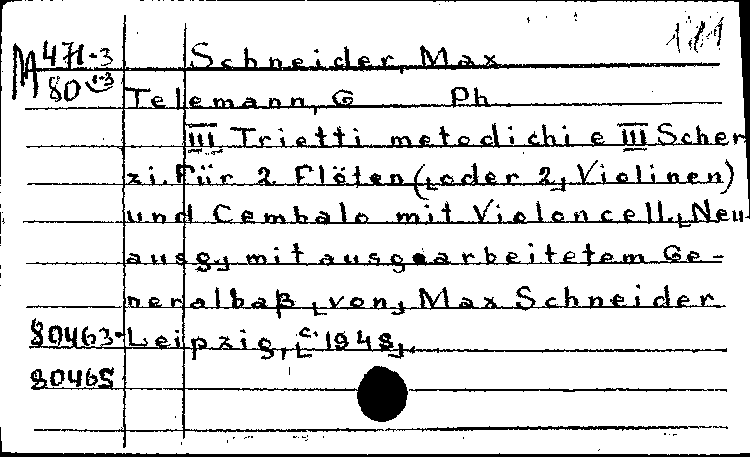 181
M 471-3 Schneider, Max
80 1-3
Telemann, G Ph
III Trietti metodichi e III Scher
zi. Für 2 Flöten (oder 2, Violinen)
und Cembalo mit Violoncell. Neu-
ausg. mit ausgearbeitetem Ge-
neralbaß von Max Schneider
80463- Leipzig, c. 1948.
80465